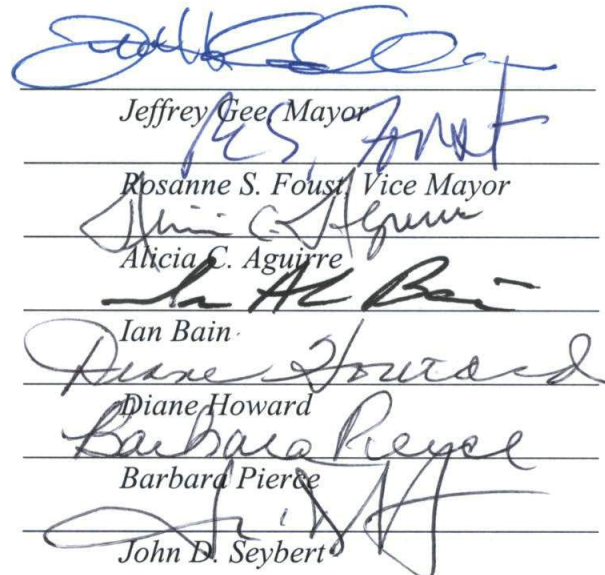 Jeffrey Gee, Mayor
R.S. Foust
Rosanne S. Foust, Vice Mayor
Alicia C. Aguirre
Alicia C. Aguirre
Ian Bain
Diane Howard
Diane Howard
Barbara Pierce
Barbara Pierce
John D. Seybert